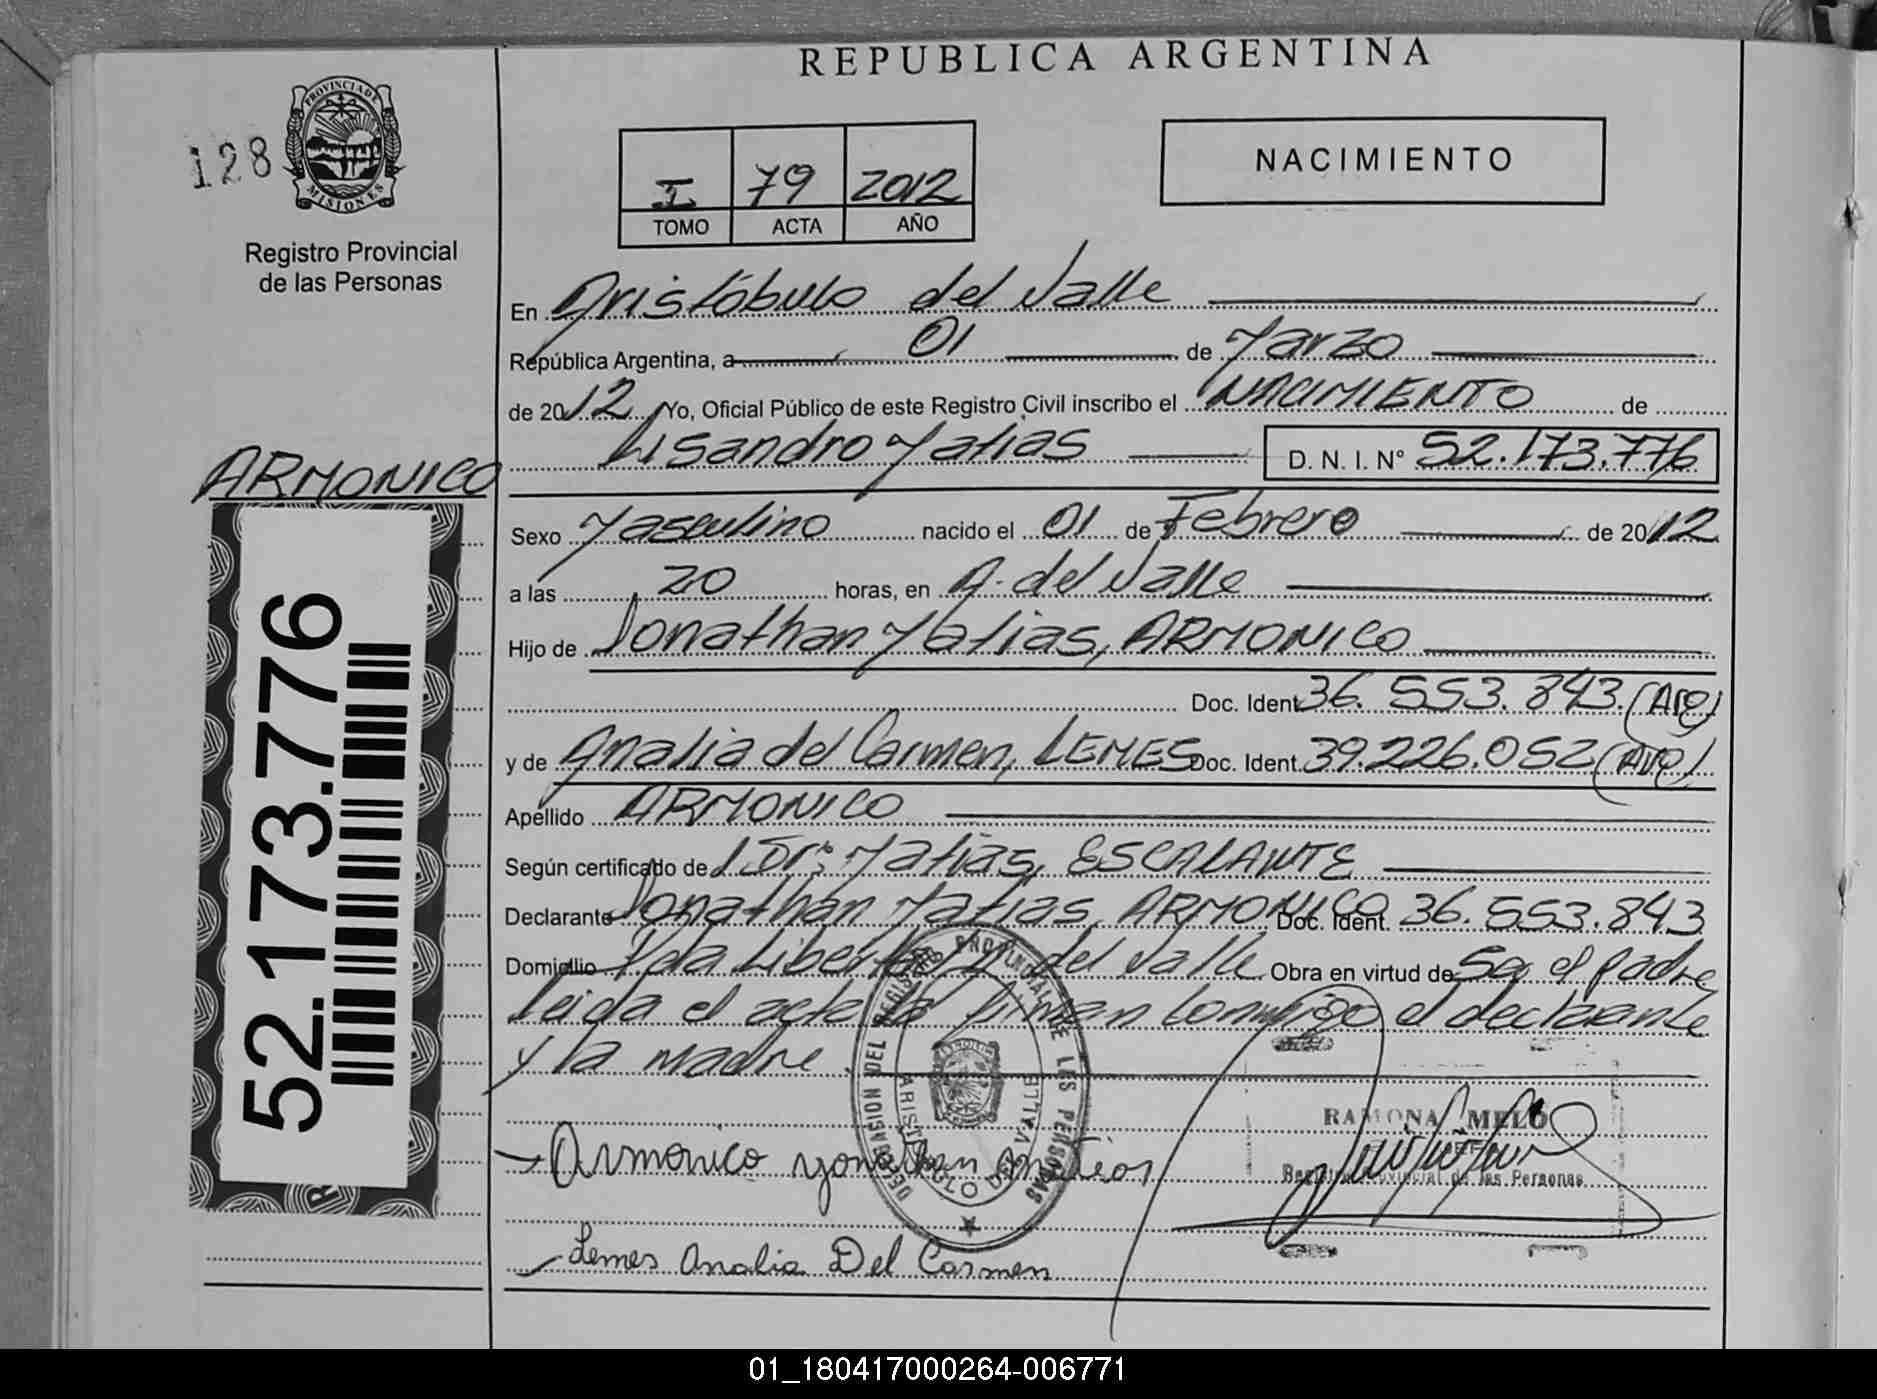 REPUBLICA ARGENTINA
128
PROVINCIA DE
MISIONES
Registro Provincial
de las Personas
I 79 2012
TOMO ACTA AÑO
NACIMIENTO
En Aristóbulo del Valle
República Argentina, a 01 de Marzo
de 2012 Yo, Oficial Público de este Registro Civil inscribo el NACIMIENTO de
Lisandro Matías D. N. I. N° 52.173.776
ARMONICO
52.173.776
Sexo Masculino nacido el 01 de Febrero de 2012
a las 20 horas, en A. del Valle
Hijo de Jonathan Matias, ARMONICO
Doc. Ident. 36.553.843 (Arg)
y de Analia del Carmen, LEMES Doc. Ident. 39.226.052 (Arg)
Apellido ARMONICO
Según certificado de Dr: Matias, ESCALANTE
Declarante Jonathan Matias, ARMONICO Doc. Ident. 36.553.843
Domicilio Pda Libertad, A. del Valle Obra en virtud de Ser el padre
leida el acta la firman conmigo el declarante
y la madre.
DELEGACION DEL REGISTRO PROVINCIAL DE LAS PERSONAS
ARISTOBULO DEL VALLE
RAMONA MELO
JEFE
Registro Provincial de las Personas
Armonico yonathan matias
Lemes Analia Del Carmen
01_180417000264-006771